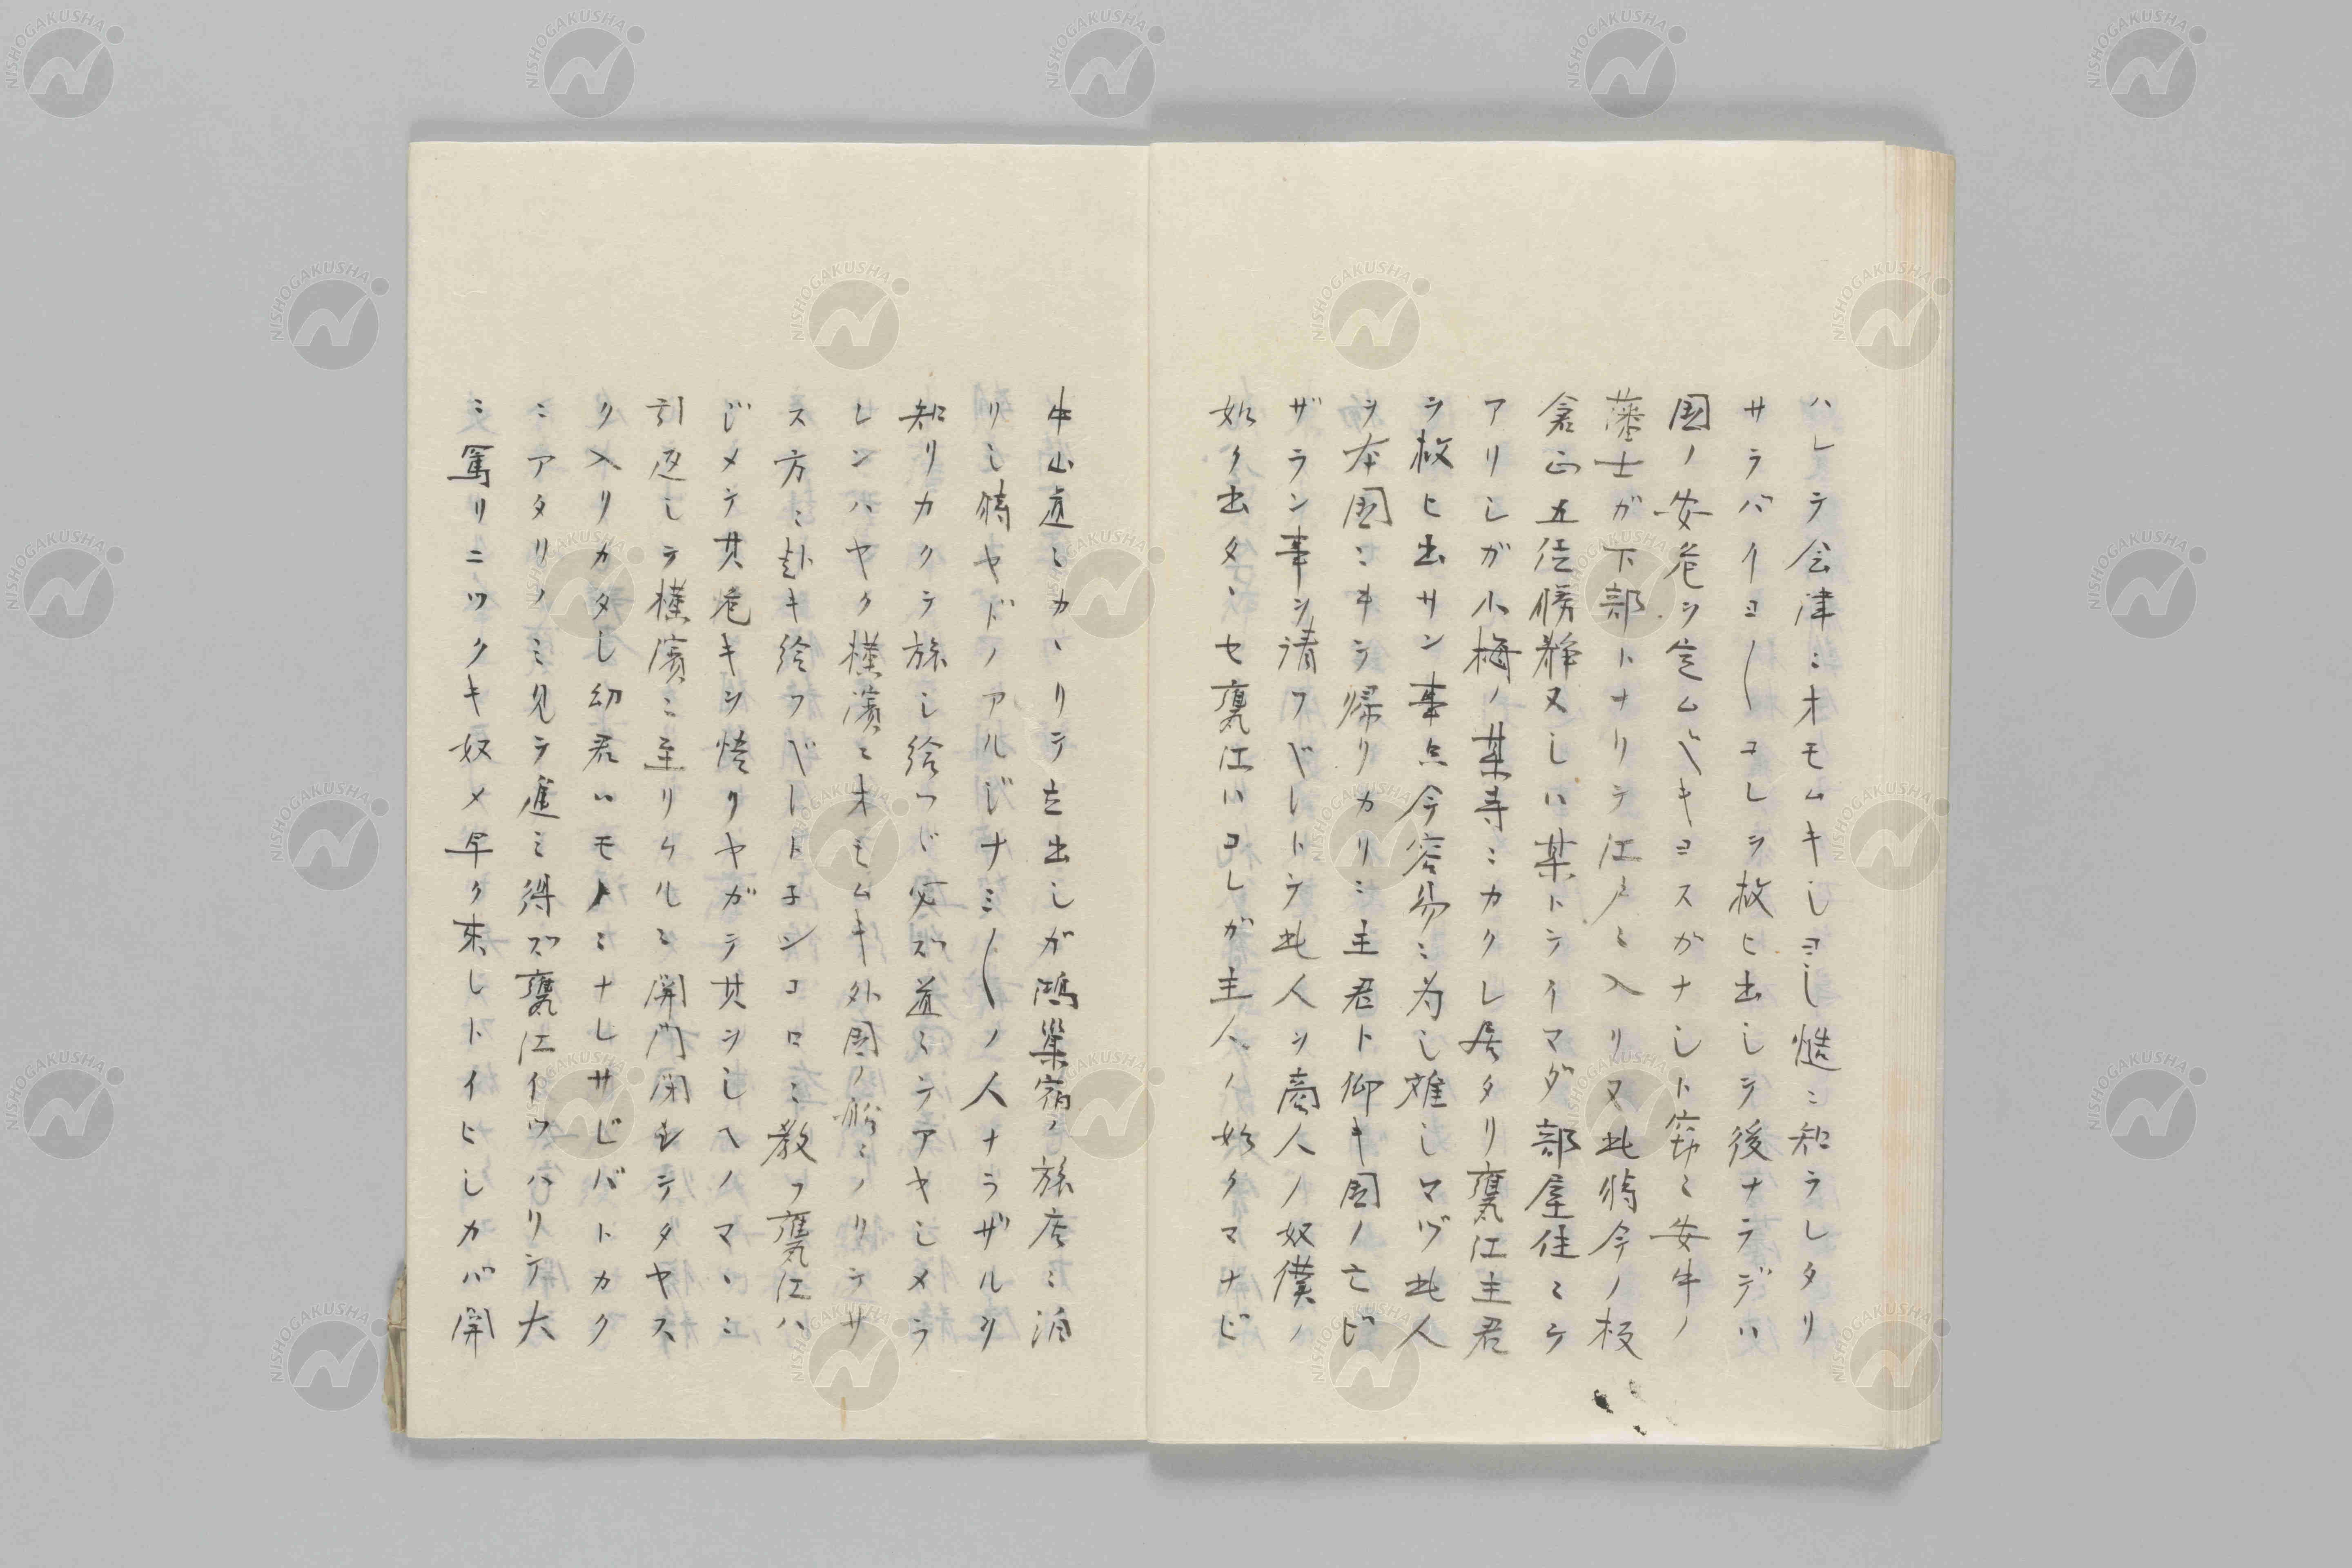 ハレテ会津ニオモムキシヨシ慥ニ知ラレタリ
サラバイヨ〱コレヲ救ヒ出シテ後ナラデハ
国ノ安危ヲ定ムベキヨスガナシト窃ニ安牛ノ
藩士ガ下部トナリテ江戸ニ入リ又此時今ノ板
倉正五位勝静又シハ某トテイマダ部屋住ミニテ
アリシガ小梅ノ某寺ニカクレ居タリ甕江主君
ヲ救ヒ出サン事ハ今容易ニ為シ難シマヅ此人
ヲ本国ニヰテ帰リカリニ主君ト仰キ国ノ亡ビ
ザラン事ヲ請フベシトテ此人ヲ商人ノ奴僕ノ
如ク出タヽセ甕江ハコレガ主人ノ如クマナビ
中山道ニカヽリテ立出シガ鴻巣宿ノ旅店ニ泊
リシ時ヤドノアルジナミ〱ノ人ナラザルヲ
知リカクテ旅シ給ハド必ズ道ニテアヤシメラ
レンハヤク横濱ニオモムキ外国ノ船ニノリテ
サス方ニ赴キ給フベシトネンコロニ教フ甕江ハ
ジメテ其危キヲ悟リヤガテ其ヲシヘノマヽニ
引返シテ横濱ニ至リケルニ関門閉ヂテタヤス
ク入リカタシ幼君ハモトミナレサレバトカク
ニアタリノミ見テ進ミ得ズ甕江イツハリテ大
ニ罵リニツクキ奴メ早ク来レトイヒシカバ関
NISHOGAKUSHA